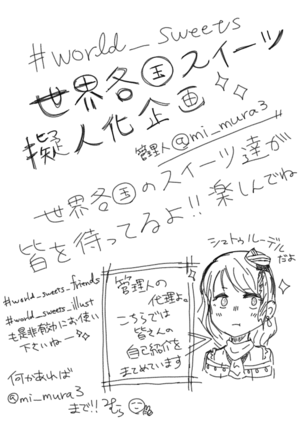 #world_sweets
世界各国スイーツ
擬人化企画
管理人@mi_mura3
世界各国のスイーツ達が
皆を待ってるよ!!楽しんでね
シュトゥルーデル
だよ
#world_sweets_friends
#world_sweets_illust
も是非有効にお使い
下さいねー
管理人の
代理よ。
こちらでは
皆さんの
自己紹介を
まとめています
何かあれば
@mi_mura3
まで!!